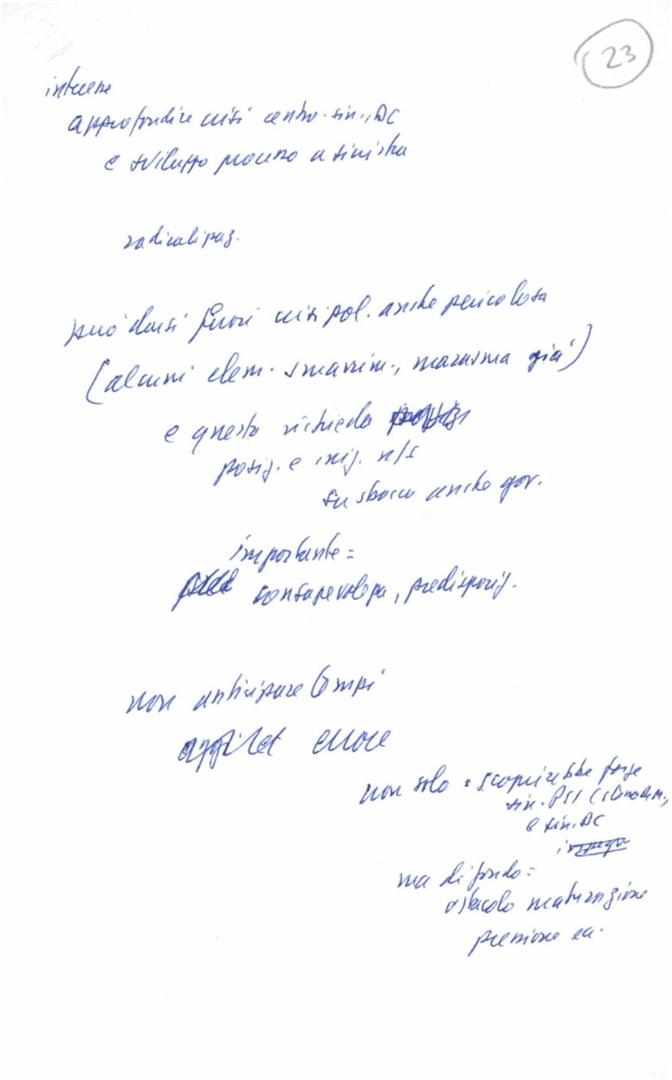 23
intuere
approfondire crisi centro-sin., DC
e sviluppo processo a sinistra
radicalizzaz.
può darsi fuori crisi pol. anche pericolosa
(alcuni elem. smarrim., marasma già)
e questo richiede
posiz. e iniz. n/s
su sbocco anche gov.
importante =
consapevolezza, predisposiz.
non anticipare tempi
errore
non solo = scoprirebbe forze
sin. PSI
e sin. DC
ma di fondo =
ostacolo maturazione
pressione